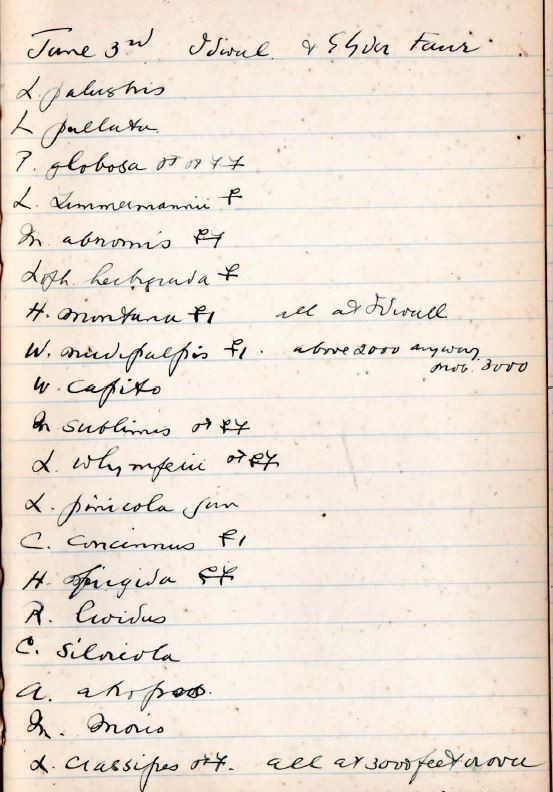 June 3rd Idwal & Glyder Fawr
L. palustris
L pullata
P. globosa ♂ ♂ ♀ ♀
L. Zimmermannii ♀
M. abnormis ♀♀
Loph. herbigrada ♀
H. montana ♀1 all at Idwall
W. nudipalpis ♀1. above 2000 anyway
prob. 3000
W. capito
M. sublimis ♂ ♀♀
L. whymperii ♂♀♀
L. pinicola juv
C. concinnus ♀1
H. frigida ♀♀
R. lividus
C. silvicola
A.
M. morio
L. crassipes ♂♀. all at 3000 feet or over